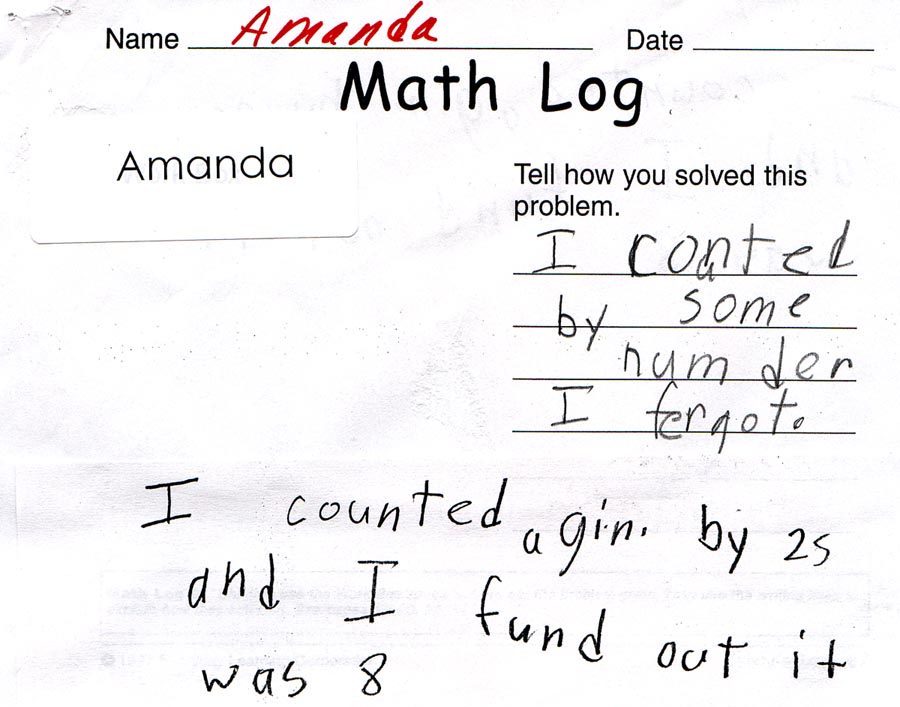 Name Amanda Date
Math Log
Amanda
Tell how you solved this
problem.
I counted
by some
numder
I fergot.
I counted agin. by 2s
and I fund out it
was 8